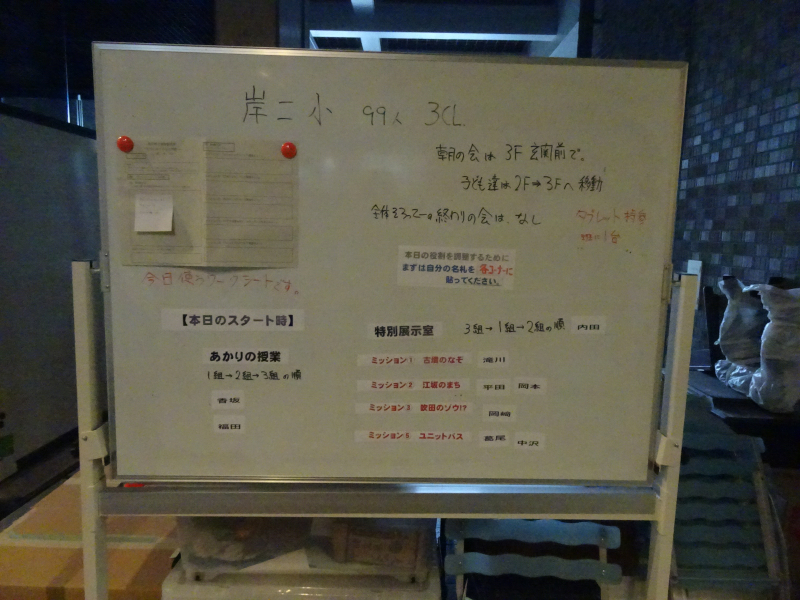 岸二小 99人 3CL.
朝の会は 3F 玄関前で。
子ども達は2F⇒3Fへ移動
全体そろっての終わりの会は、なし
タブレット持参
班に1台
今日使うワークシートです。
本日の役割を調整するために
まずは自分の名札を
貼ってください。
【本日のスタート時】
あかりの授業
1組→2組→3組の順
香坂
福田
特別展示室 3組→1組→2組の順 内田
ミッション1 古墳のなぞ 滝川
ミッション2 江坂のまち 平田 岡本
ミッション3 吹田のゾウ!? 岡崎
ミッション5 ユニットバス 葛尾 中沢